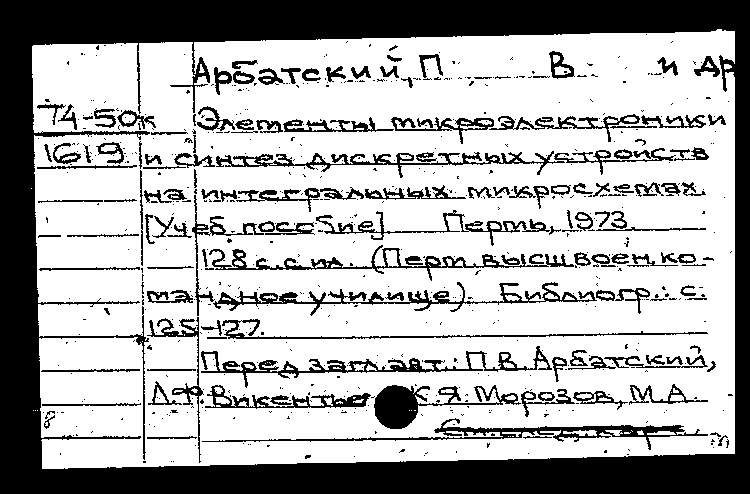 Арбатский, П В. и др
74-50к Элементы микроэлектроники
1619 и синтез дискретных устройств
на интегральных микросхемах.
[Учеб. пособие] Пермь, 1973.
128 с. с ил. (Перм. высш. воен. ко-
мандное училище). Библиогр.: с.
125-127.
Перед загл. авт.: П.В. Арбатский,
Л.Ф. Викентьев К.Я. Морозов, М.А.
См. след. карт.
8